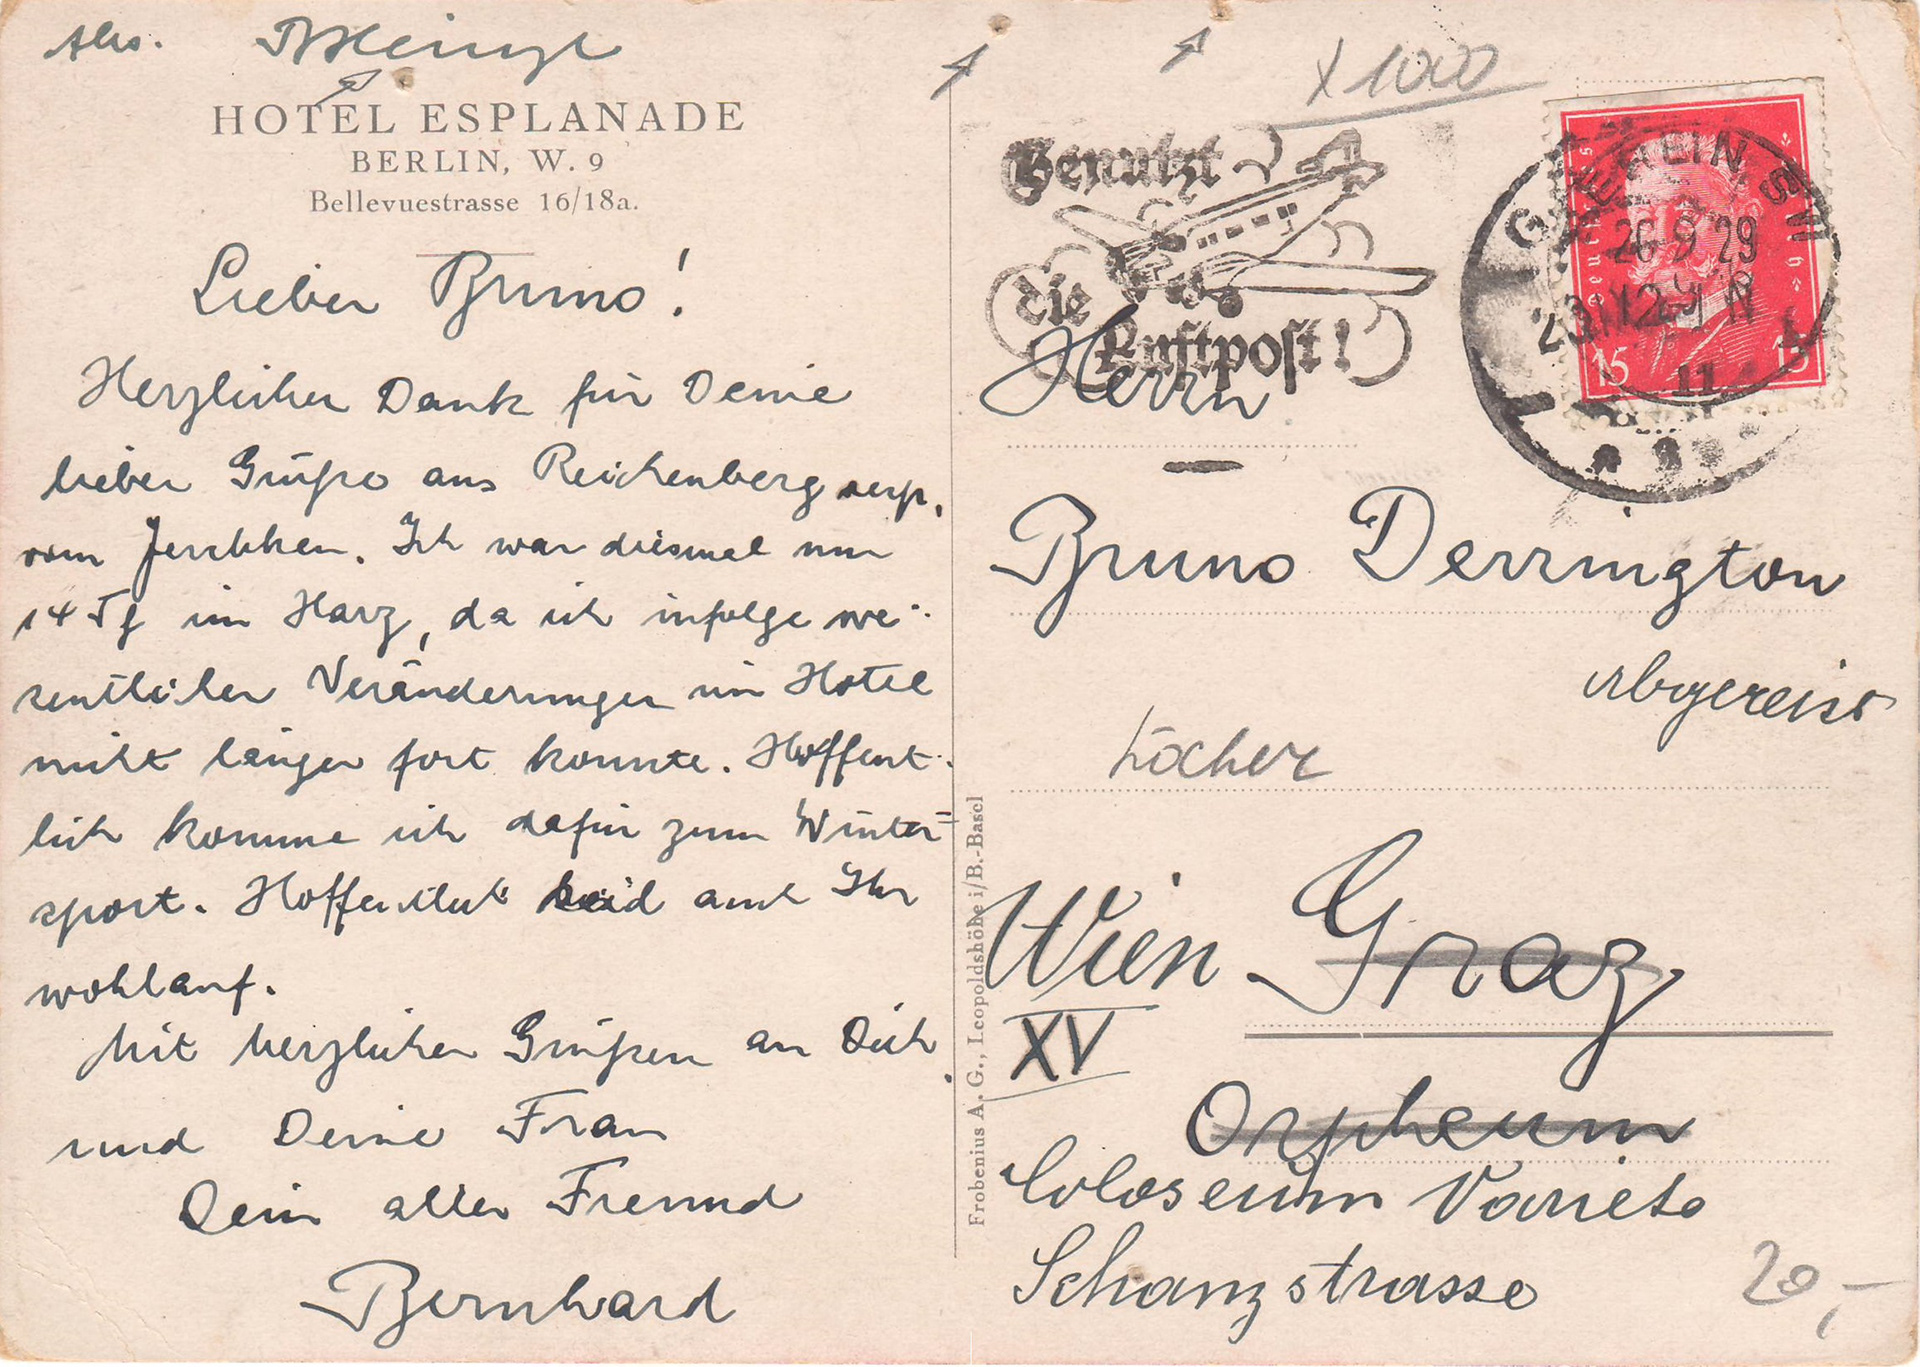 Abs. B. Meinze
HOTEL ESPLANADE
BERLIN, W. 9
Bellevuestrasse 16/18a.
Lieber Bruno!
Herzlichen Dank für Deine
lieben Grüße aus Reichenberg resp.
vom Jeschken. Ich war diesmal nur
14 Tg im Harz, da ich infolge we-
sentlicher Veränderungen im Hotel
nicht länger fort konnte. Hoffent-
lich komme ich dafür zum Winter=
sport. Hoffentlich seid auch Ihr
wohlauf.
Mit herzlichen Grüßen an Dich
und Deine Frau
Dein alter Freund
Bernhard
Frobenius A. G., Leopoldshöhe i/B.-Basel
x 1000
Benutzt
die
Luftpost!
26 9 29
11
15 15
Herrn
Bruno Derrington
abgereist
Köcher
Wien Graz
XV
Orpheum
Coloseum Varieté
Schanzstrasse
20,-